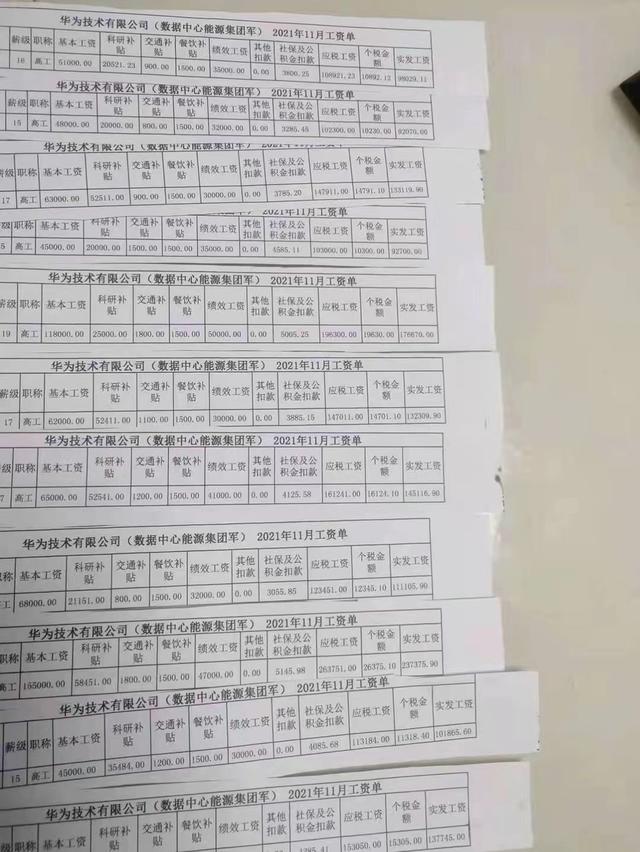 华为技术有限公司（数据中心能源集团军） 2021年11月工资单
薪级 职称 基本工资 科研补贴 交通补贴 餐饮补贴 绩效工资 其他扣款 社保及公积金扣款 应税工资 个税金额 实发工资
16 高工 51000.00 20521.23 900.00 1500.00 35000.00 0.00 3800.25 108921.23 10892.12 98029.11
华为技术有限公司（数据中心能源集团军） 2021年11月工资单
薪级 职称 基本工资 科研补贴 交通补贴 餐饮补贴 绩效工资 其他扣款 社保及公积金扣款 应税工资 个税金额 实发工资
15 高工 48000.00 20000.00 800.00 1500.00 32000.00 0.00 3285.45 102300.00 10230.00 92070.00
华为技术有限公司（数据中心能源集团军） 2021年11月工资单
薪级 职称 基本工资 科研补贴 交通补贴 餐饮补贴 绩效工资 其他扣款 社保及公积金扣款 应税工资 个税金额 实发工资
17 高工 63000.00 52511.00 900.00 1500.00 30000.00 0.00 3785.20 147911.00 14791.10 133119.90
2021年11月工资单
薪级 职称 基本工资 科研补贴 交通补贴 餐饮补贴 绩效工资 其他扣款 社保及公积金扣款 应税工资 个税金额 实发工资
5 高工 45000.00 20090.00 1500.00 1500.00 35000.00 0.00 4585.11 103000.00 10300.00 92700.00
华为技术有限公司（数据中心能源集团军） 2021年11月工资单
薪级 职称 基本工资 科研补贴 交通补贴 餐饮补贴 绩效工资 其他扣款 社保及公积金扣款 应税工资 个税金额 实发工资
19 高工 118000.00 25000.00 1800.00 1500.00 50000.00 0.00 5005.25 196300.00 19630.00 176670.00
华为技术有限公司（数据中心能源集团军） 2021年11月工资单
薪级 职称 基本工资 科研补贴 交通补贴 餐饮补贴 绩效工资 其他扣款 社保及公积金扣款 应税工资 个税金额 实发工资
17 高工 62000.00 52411.00 1100.00 1500.00 30000.00 0.00 3885.15 147011.00 14701.10 132309.90
华为技术有限公司（数据中心能源集团军） 2021年11月工资单
级 职称 基本工资 科研补贴 交通补贴 餐饮补贴 绩效工资 其他扣款 社保及公积金扣款 应税工资 个税金额 实发工资
7 高工 65000.00 52541.00 1200.00 1500.00 41000.00 0.00 4125.58 161241.00 16124.10 145116.90
华为技术有限公司（数据中心能源集团军） 2021年11月工资单
职称 基本工资 科研补贴 交通补贴 餐饮补贴 绩效工资 其他扣款 社保及公积金扣款 应税工资 个税金额 实发工资
高工 68000.00 21151.00 800.00 1500.00 32000.00 0.00 3055.85 123451.00 12345.10 111105.90
华为技术有限公司（数据中心能源集团军） 2021年11月工资单
职称 基本工资 科研补贴 交通补贴 餐饮补贴 绩效工资 其他扣款 社保及公积金扣款 应税工资 个税金额 实发工资
高工 155000.00 58451.00 1800.00 1500.00 47000.00 0.00 5145.98 263751.00 26375.10 237375.90
华为技术有限公司（数据中心能源集团军） 2021年11月工资单
薪级 职称 基本工资 科研补贴 交通补贴 餐饮补贴 绩效工资 其他扣款 社保及公积金扣款 应税工资 个税金额 实发工资
15 高工 45000.00 35484.00 1200.00 1500.00 30000.00 0.00 4085.68 113184.00 11318.40 101865.60
华为技术有限公司（数据中心能源集团军） 2021年11月工资单
薪级 职称 基本工资 科研补贴 交通补贴 餐饮补贴 绩效工资 其他扣款 社保及公积金扣款 应税工资 个税金额 实发工资
153050.00 15305.00 137745.00